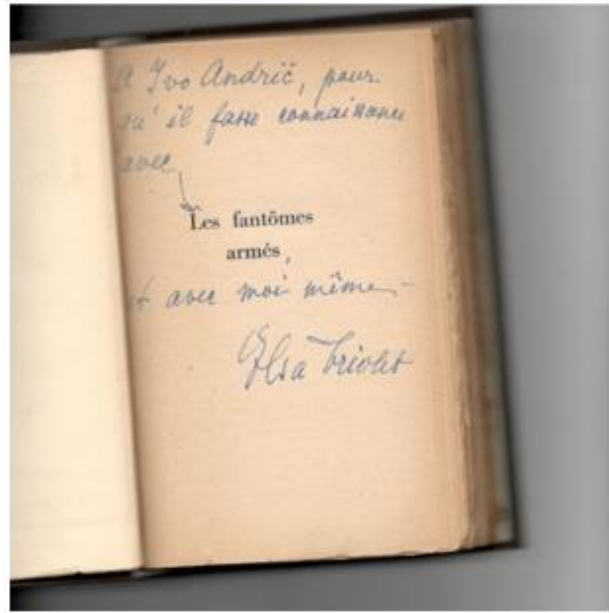 A Ivo Andrić, pour
qu'il fasse connaissance
avec
Les fantômes
armés,
et avec moi-même –
Elsa Triolet